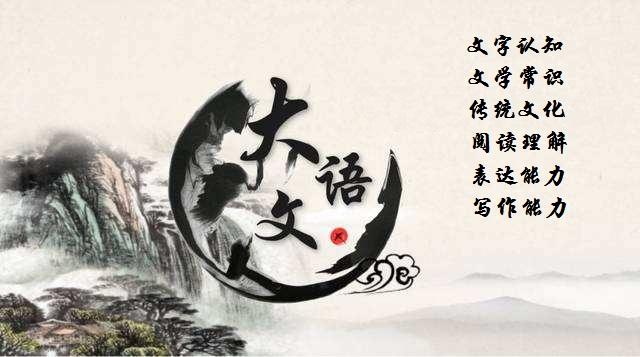 大语文人
文字认知
文学常识
传统文化
阅读理解
表达能力
写作能力